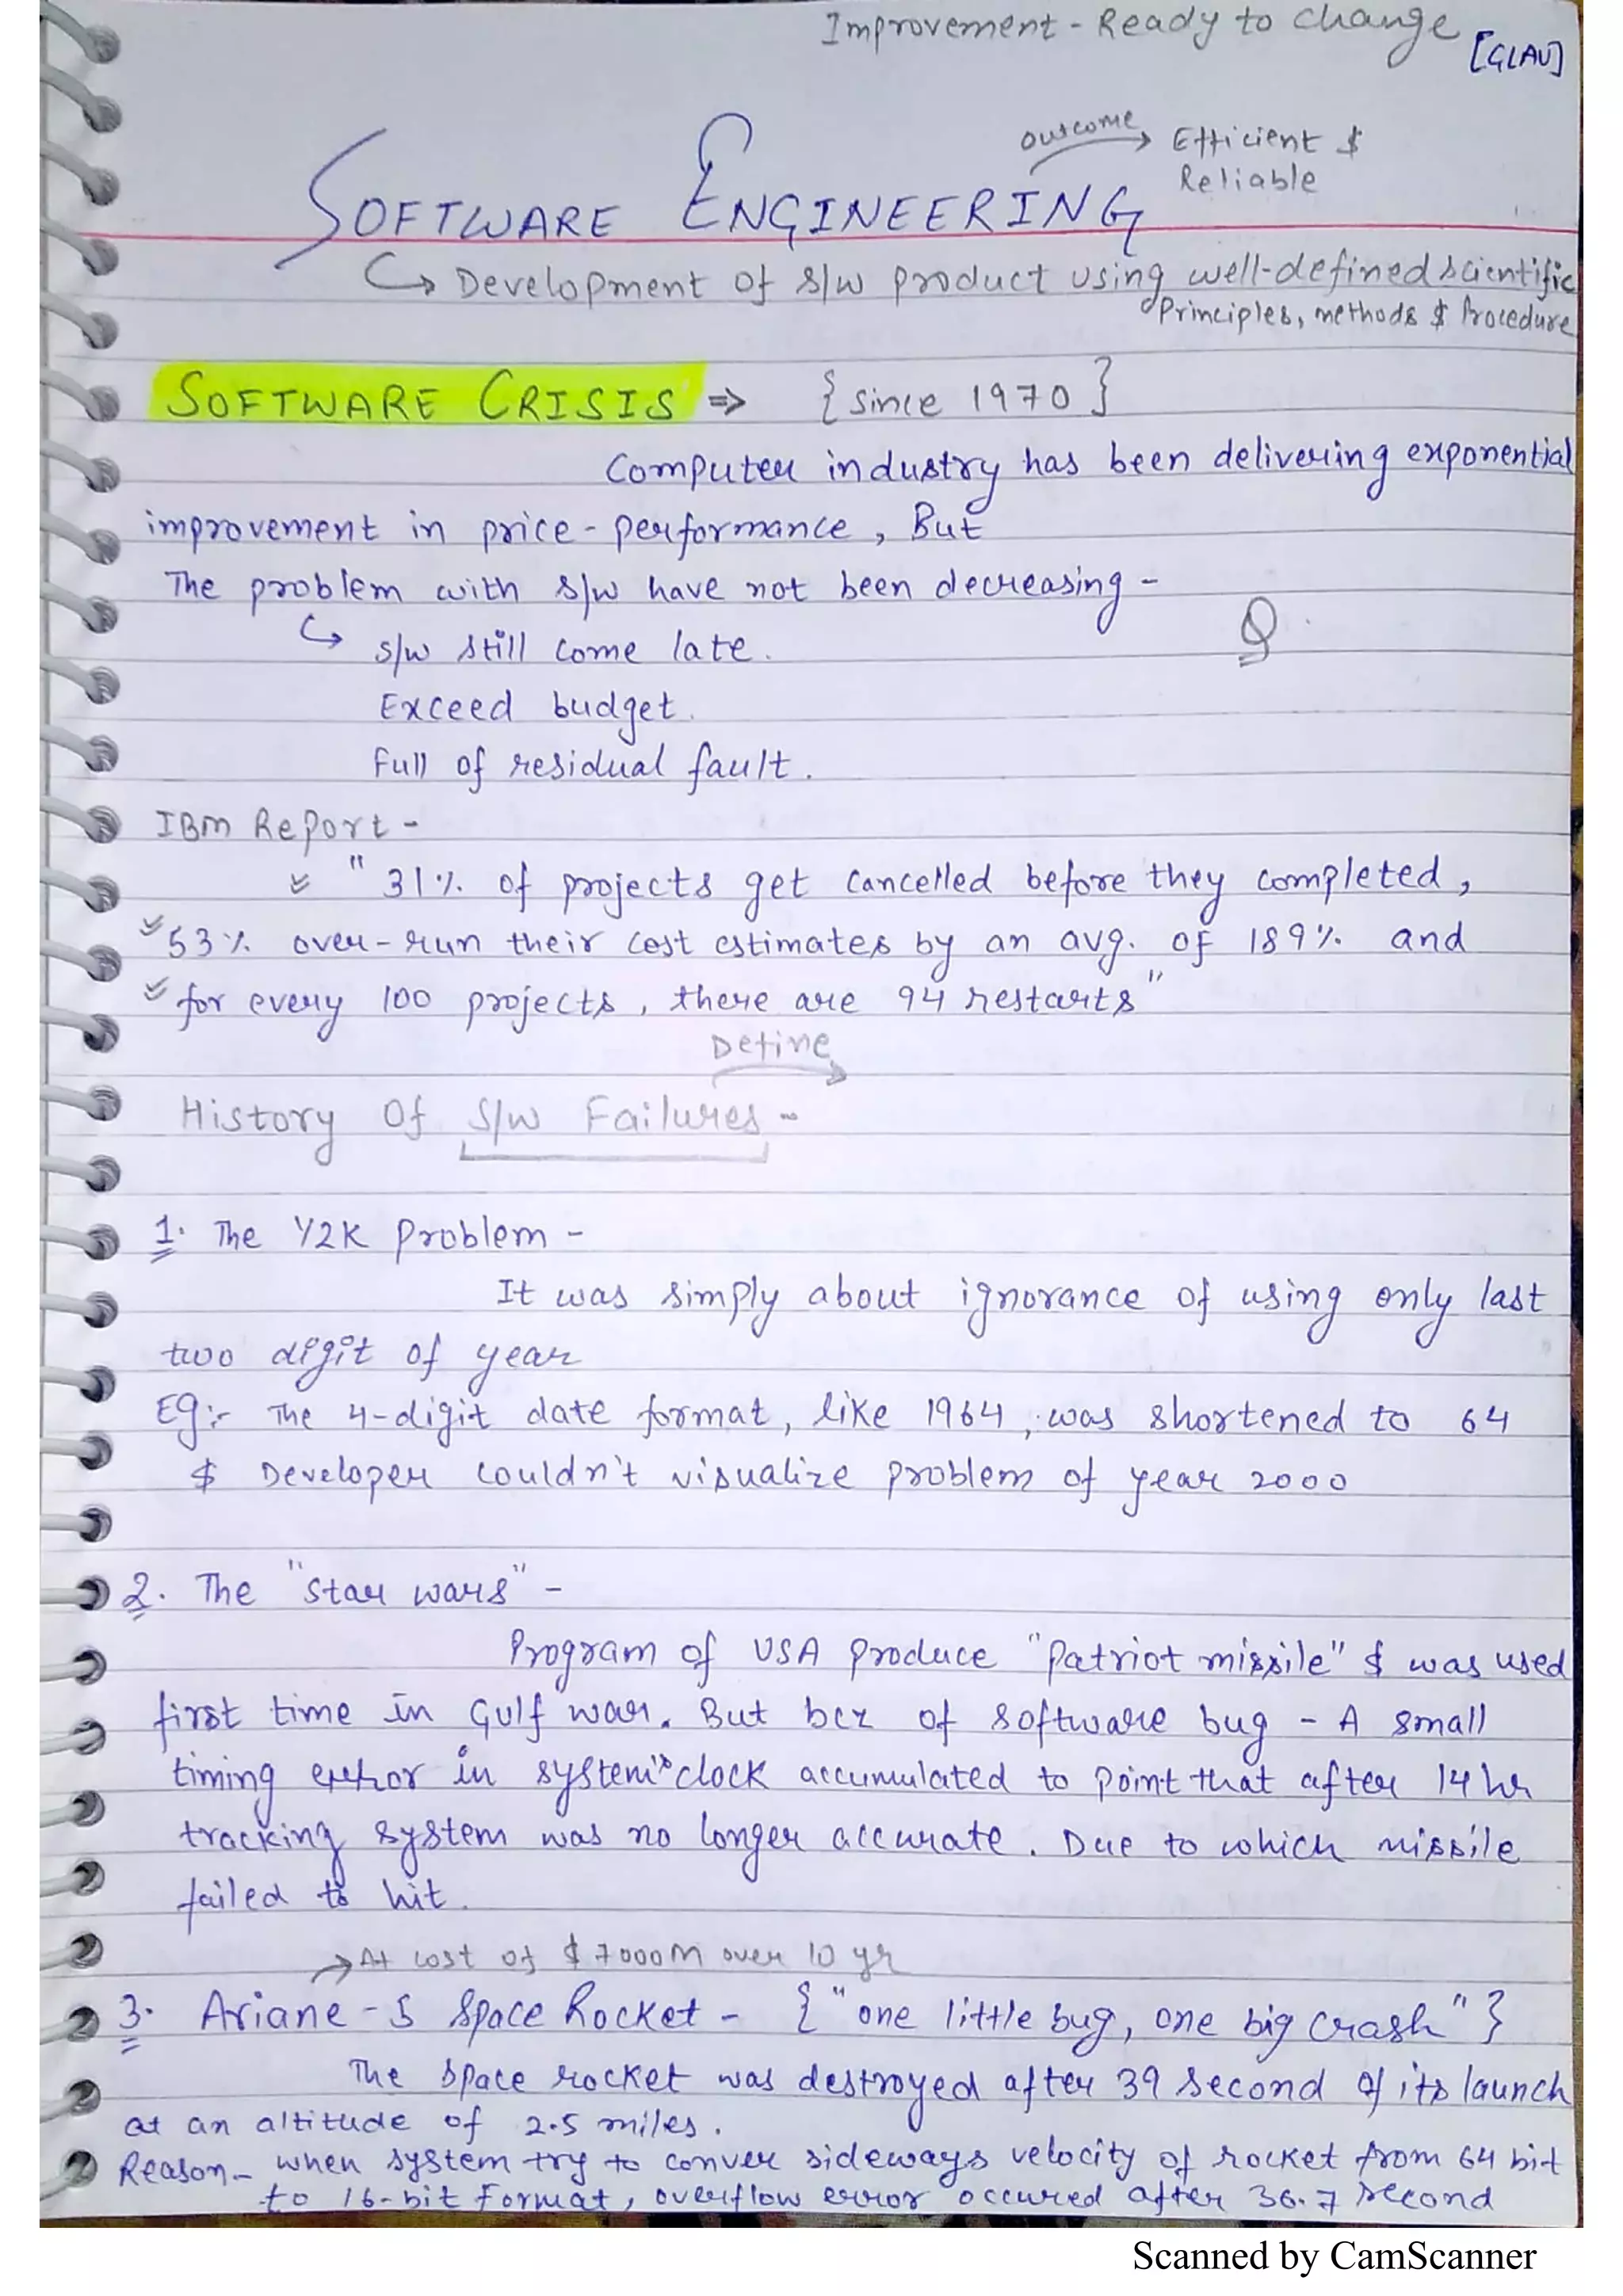 Improvement - Ready to change
[GLAU]
outcome → Efficient &
Reliable
SOFTWARE ENGINEERING
↳ Development of s/w product using well-defined scientific
Principles, methods & Procedure
SOFTWARE CRISIS ⇒ {since 1970}
Computer industry has been delivering exponential
improvement in price-performance, But
The problem with s/w have not been decreasing -
↳ s/w still come late.
Q
Exceed budget.
Full of residual fault.
IBM Report -
" 31% of projects get cancelled before they completed,
53% over-run their cost estimates by an avg. of 189% and
for every 100 projects, there are 94 restarts"
Define
History Of S/w Failures -
1. The Y2K Problem -
It was simply about ignorance of using only last
two digit of year
Eg:- The 4-digit date format, like 1964, was shortened to 64
& Developer couldn't visualize problem of year 2000
2. The "star wars" -
Program of USA produce "Patriot missile" & was used
first time in Gulf war. But bcz of software bug - A small
timing error in system's clock accumulated to point that after 14 hr
tracking system was no longer accurate. Due to which missile
failed to hit.
→ At cost of $7000M over 10 yr
3. Ariane-5 Space Rocket - {"one little bug, one big crash"}
The space rocket was destroyed after 39 second of its launch
at an altitude of 2.5 miles.
Reason - when system try to conver sideways velocity of rocket from 64 bit
to 16-bit format, overflow error occured after 36.7 second
Scanned by CamScanner